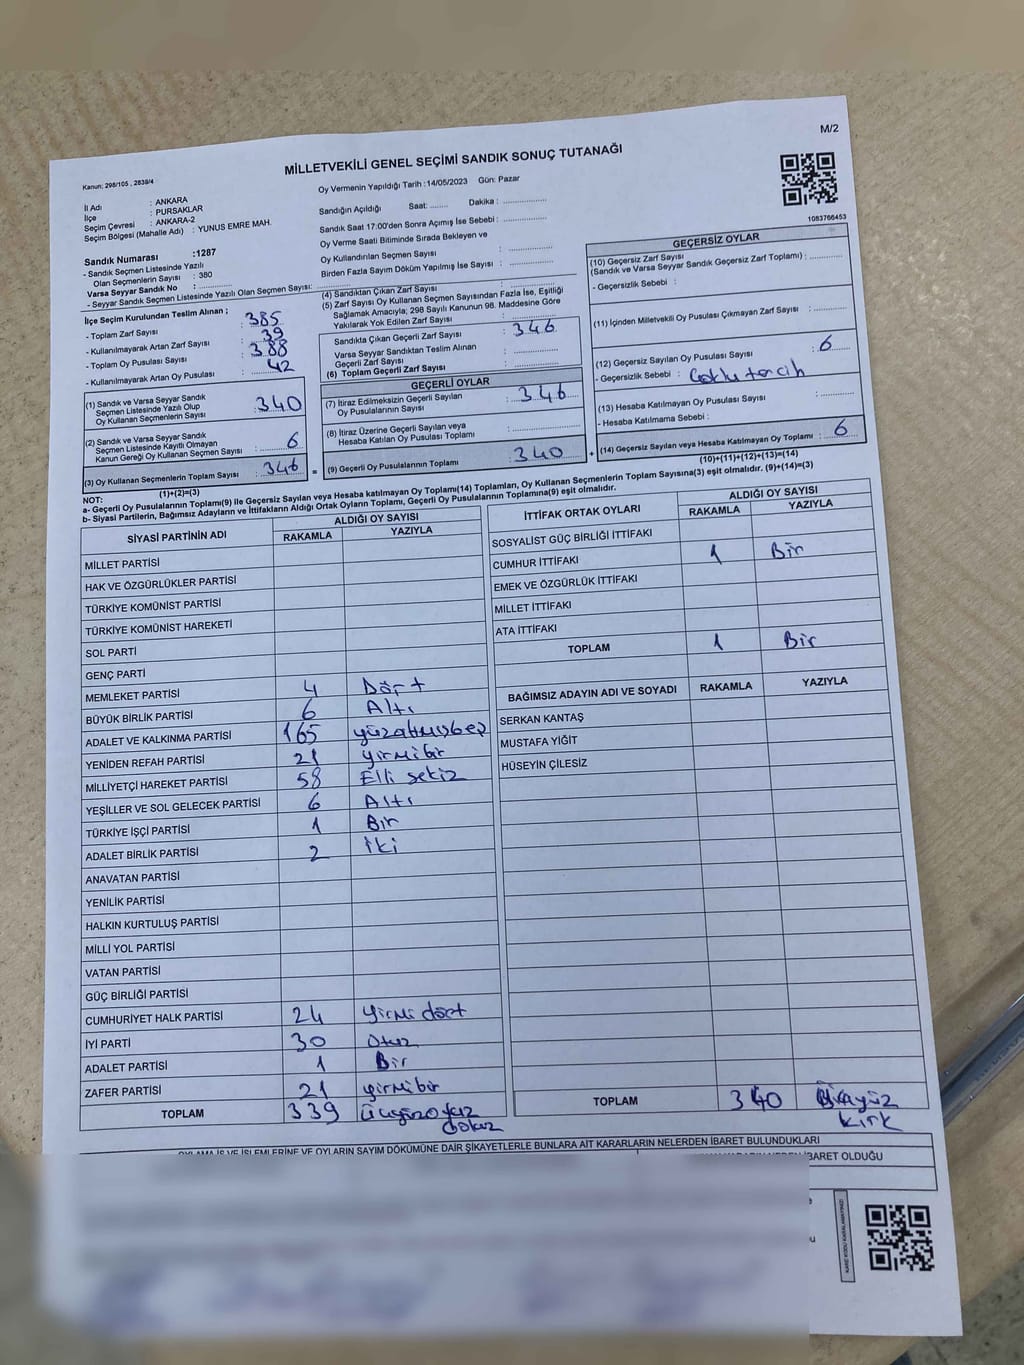 M/2
MİLLETVEKİLİ GENEL SEÇİMİ SANDIK SONUÇ TUTANAĞI
Kanun: 298/105 , 2839/4
Oy Vermenin Yapıldığı Tarih :14/05/2023 Gün: Pazar
İl Adı : ANKARA
İlçe : PURSAKLAR
Seçim Çevresi : ANKARA-2
Seçim Bölgesi (Mahalle Adı) : YUNUS EMRE MAH.
Sandık Numarası :1287
- Sandık Seçmen Listesinde Yazılı
Olan Seçmenlerin Sayısı : 380
Varsa Seyyar Sandık No : ..............
- Seyyar Sandık Seçmen Listesinde Yazılı Olan Seçmen Sayısı: ..............
Sandığın Açıldığı Saat: ........ Dakika : ..................
Sandık Saat 17:00'den Sonra Açımış İse Sebebi : ..................
Oy Verme Saati Bitiminde Sırada Bekleyen ve
Oy Kullandırılan Seçmen Sayısı : ..................
Birden Fazla Sayım Döküm Yapılmış İse Sayısı : ..................
1083766453
İlçe Seçim Kurulundan Teslim Alınan ;
- Toplam Zarf Sayısı : 385
- Kullanılmayarak Artan Zarf Sayısı : 39
- Toplam Oy Pusulası Sayısı : 388
- Kullanılmayarak Artan Oy Pusulası : 42
(1) Sandık ve Varsa Seyyar Sandık
Seçmen Listesinde Yazılı Olup
Oy Kullanan Seçmenlerin Sayısı : 340
(2) Sandık ve Varsa Seyyar Sandık
Seçmen Listesinde Kayıtlı Olmayan
Kanun Gereği Oy Kullanan Seçmen Sayısı : 6
(3) Oy Kullanan Seçmenlerin Toplam Sayısı : 346
(1)+(2)=(3)
(4) Sandıktan Çıkan Zarf Sayısı : ..................
(5) Zarf Sayısı Oy Kullanan Seçmen Sayısından Fazla İse, Eşitliği
Sağlamak Amacıyla; 298 Sayılı Kanunun 98. Maddesine Göre
Yakılarak Yok Edilen Zarf Sayısı : ..................
Sandıkta Çıkan Geçerli Zarf Sayısı : 346
Varsa Seyyar Sandıktan Teslim Alınan
Geçerli Zarf Sayısı : ..................
(6) Toplam Geçerli Zarf Sayısı : ..................
=
GEÇERLİ OYLAR
(7) İtiraz Edilmeksizin Geçerli Sayılan
Oy Pusulalarının Sayısı : 346
(8) İtiraz Üzerine Geçerli Sayılan veya
Hesaba Katılan Oy Pusulası Toplamı : ..................
(9) Geçerli Oy Pusulalarının Toplamı : 340
+
GEÇERSİZ OYLAR
(10) Geçersiz Zarf Sayısı
(Sandık ve Varsa Seyyar Sandık Geçersiz Zarf Toplamı) : ............
- Geçersizlik Sebebi :
(11) İçinden Milletvekili Oy Pusulası Çıkmayan Zarf Sayısı : ............
(12) Geçersiz Sayılan Oy Pusulası Sayısı : 6
- Geçersizlik Sebebi : Çoklu tercih
(13) Hesaba Katılmayan Oy Pusulası Sayısı : ............
- Hesaba Katılmama Sebebi :
(14) Geçersiz Sayılan veya Hesaba Katılmayan Oy Toplamı : 6
(10)+(11)+(12)+(13)=(14)
NOT:
a- Geçerli Oy Pusulalarının Toplamı(9) ile Geçersiz Sayılan veya Hesaba katılmayan Oy Toplamı(14) Toplamları, Oy Kullanan Seçmenlerin Toplam Sayısına(3) eşit olmalıdır. (9)+(14)=(3)
b- Siyasi Partilerin, Bağımsız Adayların ve İttifakların Aldığı Ortak Oyların Toplamı, Geçerli Oy Pusulalarının Toplamına(9) eşit olmalıdır.
SİYASİ PARTİNİN ADI ALDIĞI OY SAYISI
RAKAMLA YAZIYLA
MİLLET PARTİSİ
HAK VE ÖZGÜRLÜKLER PARTİSİ
TÜRKİYE KOMÜNİST PARTİSİ
TÜRKİYE KOMÜNİST HAREKETİ
SOL PARTİ
GENÇ PARTİ
MEMLEKET PARTİSİ 4 Dört
BÜYÜK BİRLİK PARTİSİ 6 Altı
ADALET VE KALKINMA PARTİSİ 165 yüzatmışbeş
YENİDEN REFAH PARTİSİ 21 yirmibir
MİLLİYETÇİ HAREKET PARTİSİ 58 Elli sekiz
YEŞİLLER VE SOL GELECEK PARTİSİ 6 Altı
TÜRKİYE İŞÇİ PARTİSİ 1 Bir
ADALET BİRLİK PARTİSİ 2 İki
ANAVATAN PARTİSİ
YENİLİK PARTİSİ
HALKIN KURTULUŞ PARTİSİ
MİLLİ YOL PARTİSİ
VATAN PARTİSİ
GÜÇ BİRLİĞİ PARTİSİ
CUMHURİYET HALK PARTİSİ 24 Yirmi dört
İYİ PARTİ 30 Otuz
ADALET PARTİSİ 1 Bir
ZAFER PARTİSİ 21 yirmibir
TOPLAM 339 Üçyüzotuz
dokuz
İTTİFAK ORTAK OYLARI ALDIĞI OY SAYISI
RAKAMLA YAZIYLA
SOSYALİST GÜÇ BİRLİĞİ İTTİFAKI
CUMHUR İTTİFAKI 1 Bir
EMEK VE ÖZGÜRLÜK İTTİFAKI
MİLLET İTTİFAKI
ATA İTTİFAKI
TOPLAM 1 Bir
BAĞIMSIZ ADAYIN ADI VE SOYADI RAKAMLA YAZIYLA
SERKAN KANTAŞ
MUSTAFA YİĞİT
HÜSEYİN ÇİLESİZ
TOPLAM 340 Üçyüz
kırk
OYLAMA İŞ VE İŞLEMLERİNE VE OYLARIN SAYIM DÖKÜMÜNE DAİR ŞİKAYETLERLE BUNLARA AİT KARARLARIN NELERDEN İBARET BULUNDUKLARI
İBARET OLDUĞU